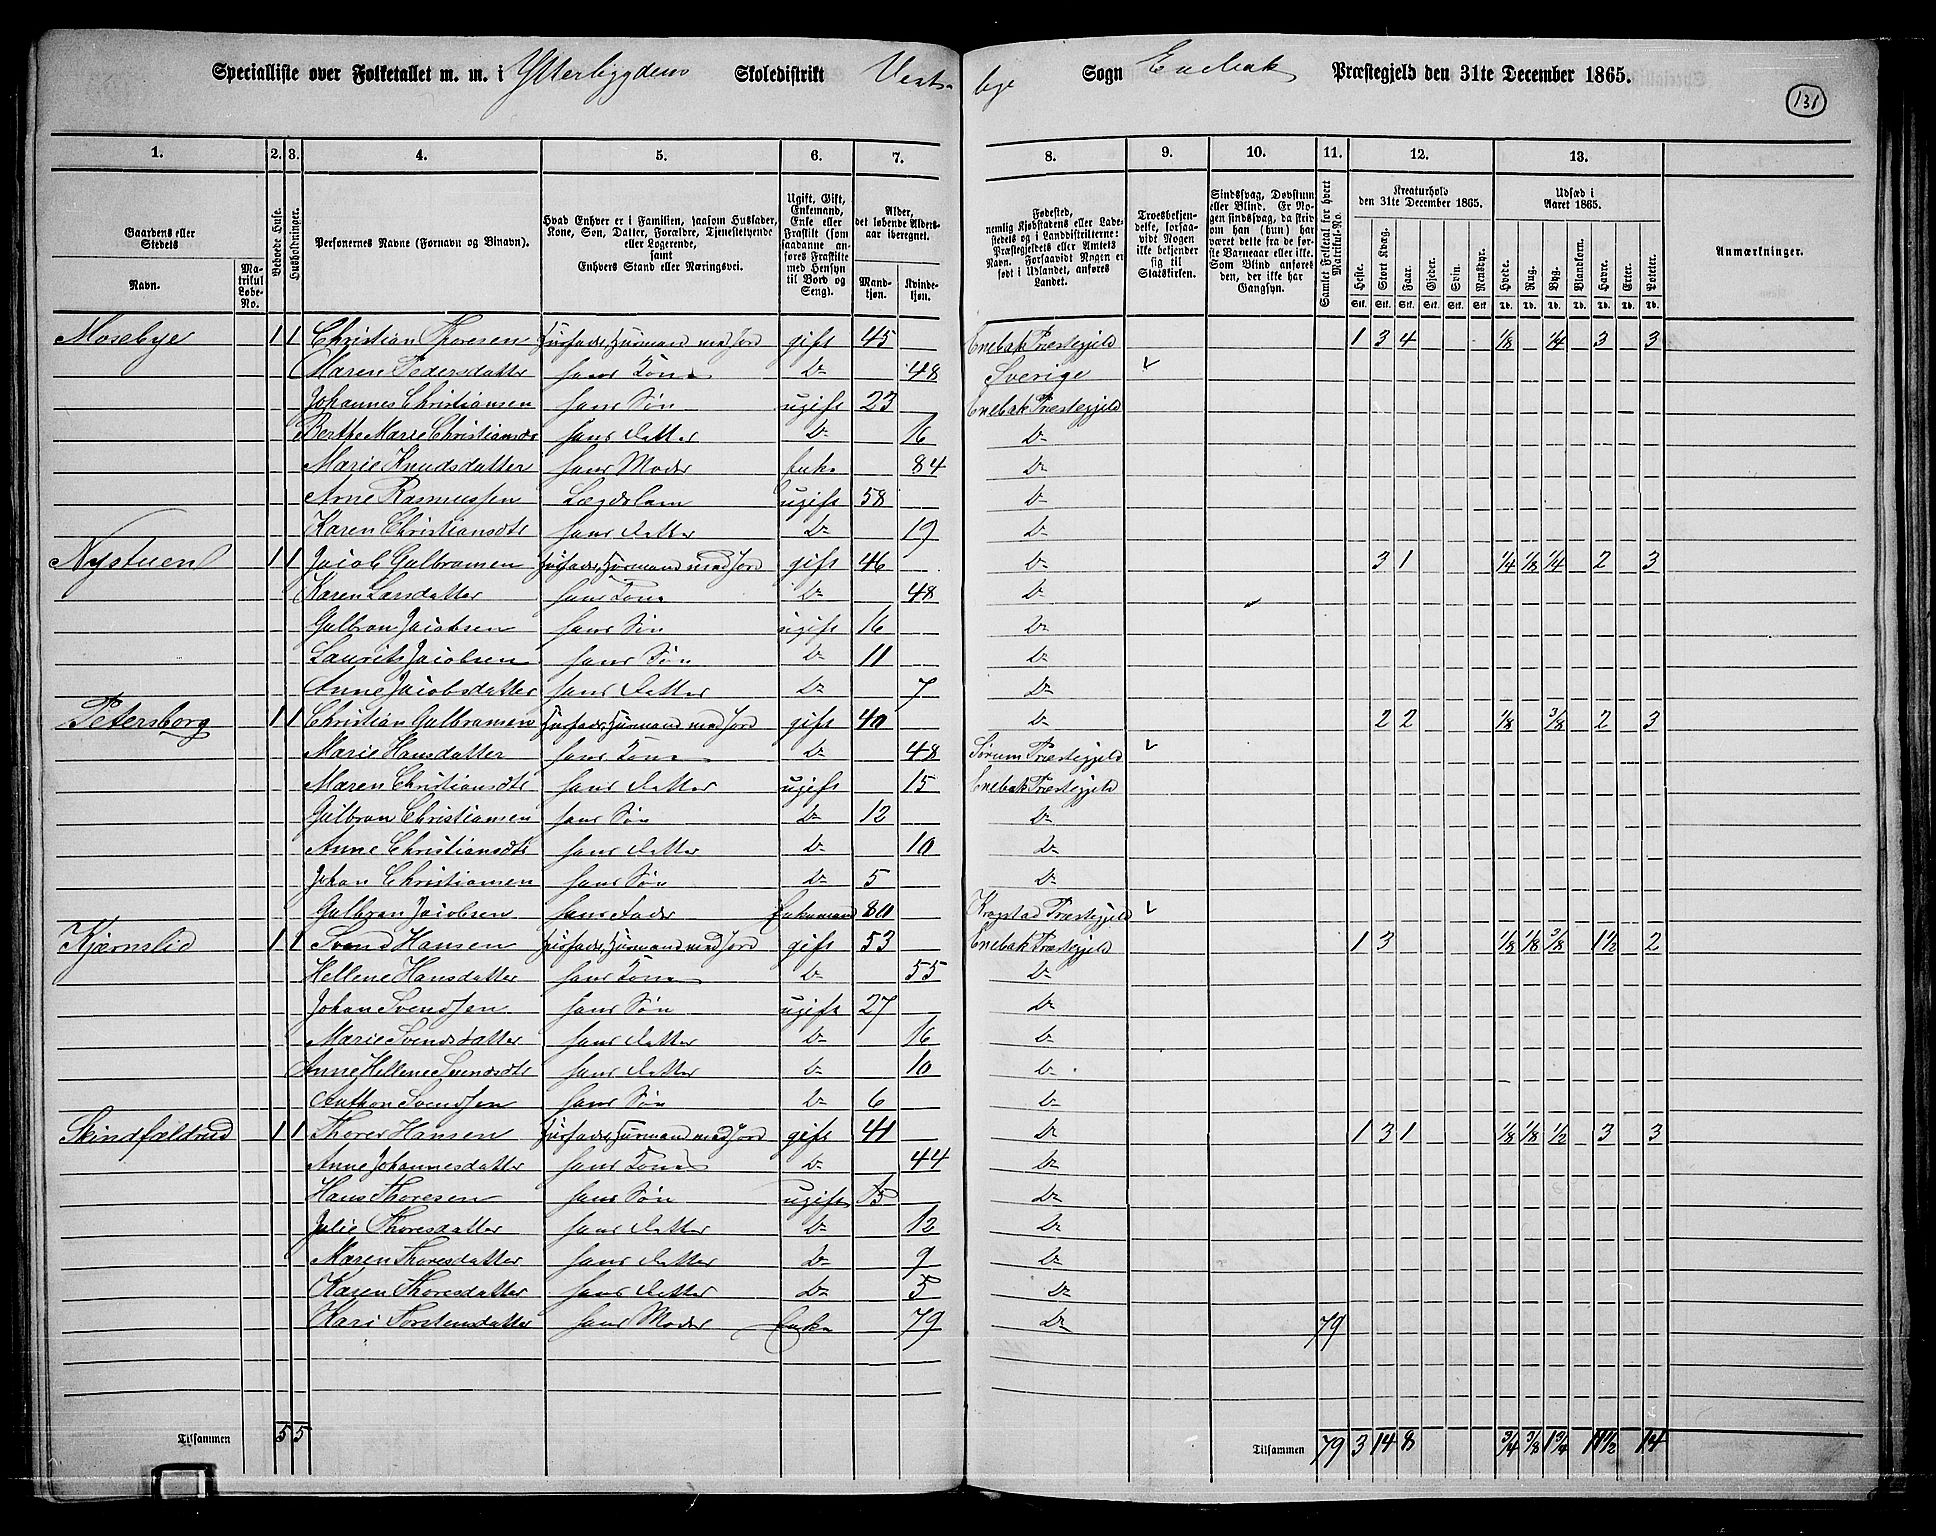 Specialliste over Folketallet m. m. i Ytterbygdens Skoledistrikt Vestbye Sogn Enebak Præstegjeld den 31te December 1865.
131
1. 2. 3. 4. 5. 6. 7. 8. 9. 10. 11. 12. 13.
Gaardens eller Stedets
Navn.
Matrikul Løbe-No.
Beboede Huse.
Husholdninger.
Personernes Navne (Fornavn og Binavn).
Hvad Enhver er i Familien, saasom Husfader, Kone, Søn, Datter, Forældre, Tjenestetyende eller Logerende, samt Enhvers Stand eller Næringsvei.
Ugift, Gift, Enkemand, Enke eller Fraskilt (som saadanne anføres Fraskilte med Hensyn til Bord og Seng).
Alder, det løbende Aldersaar iberegnet.
Mandkjøn. Kvindekjøn.
Fødested, nemlig Kjøbstadens eller Ladestedets og i Landdistrikterne: Præstegjeldets eller Amtets Navn. Forsaavidt Nogen er født i Udlandet, anføres Landet.
Troesbekjendelse, forsaavidt Nogen ikke bekjender sig til Statskirken.
Sindssvag, Døvstum eller Blind. Er Nogen sindssvag, da skrives om han (hun) har været dette fra de første Barneaar eller ikke. Som Blind anføres den, der ikke har Gangsyn.
Samlet Folketal for hvert Matrikul-No.
Kreaturhold den 31te December 1865.
Heste. Stort Kvæg. Faar. Gjeder. Svin. Rensdyr.
Udsæd i Aaret 1865.
Hvede. Rug. Byg. Blandkorn. Havre. Erter. Poteter.
Anmærkninger.
Mosebye 1 1 Christian Thoresen Husfader, Husmand med Jord gift 45 Enebak Præstegjeld 1 3 4 1/8 1/4 3 3
Maren Pedersdatter hans Kone Do 48 Sverige
Johannes Christiansen hans Søn ugift 23 Enebak Præstegjeld
Berthe Marie Christiansdr hans Datter Do 16 Do
Marie Knudsdatter hans Moder Enke 84 Do
Arne Rasmussen Lægdslem ugift 58 Do
Karen Christiansdtr hans Datter Do 19 Do
Nystuen 1 1 Jacob Gulbransen Husfader, Husmand med Jord gift 46 Do 3 1 1/4 1/8 1/4 2 3
Karen Larsdatter hans Kone Do 48 Do
Gulbran Jacobsen hans Søn ugift 16 Do
Laurits Jacobsen hans Søn Do 11 Do
Anne Jacobsdatter hans Datter Do 7 Do
Petersborg 1 1 Christian Gulbransen Husfader, Husmand med Jord gift 40 Do 2 2 1/8 3/8 2 3
Marie Hansdatter hans Kone Do 48 Sørum Præstegjeld
Maren Christiansdtr hans Datter ugift 15 Enebak Præstegjeld
Gulbran Christiansen hans Søn Do 12 Do
Anne Christiansdtr hans Datter Do 10 Do
Johan Christiansen hans Søn Do 5 Do
Gulbran Jacobsen hans Fader Enkemand 80 Krogstad Præstegjeld
Kjærnslid 1 1 Svend Hansen Husfader, Husmand med Jord gift 53 Enebak Præstegjeld 1 3 1/8 1/8 3/8 1 1/2 2
Hellene Hansdatter hans Kone Do 55 Do
Johan Svendsen hans Søn ugift 27 Do
Marie Svendsdatter hans Datter Do 16 Do
Anne Hellene Svendsdtr hans Datter Do 10 Do
Anthon Svendsen hans Søn Do 6 Do
Skindfældrud 1 1 Thorer Hansen Husfader, Husmand med Jord gift 41 Do 1 3 1 1/8 1/8 1/2 3 3
Anne Johannesdatter hans Kone Do 44 Do
Hans Thoresen hans Søn ugift 15 Do
Julie Thoresdatter hans Datter Do 12 Do
Maren Thoresdatter hans Datter Do 9 Do
Karen Thoresdatter hans Datter Do 5 Do
Kari Torstensdatter hans Moder Enke 79 Do 79
Tilsammen 5 5 Tilsammen 79 3 14 8 3/4 3/8 1 3/4 11 1/2 14